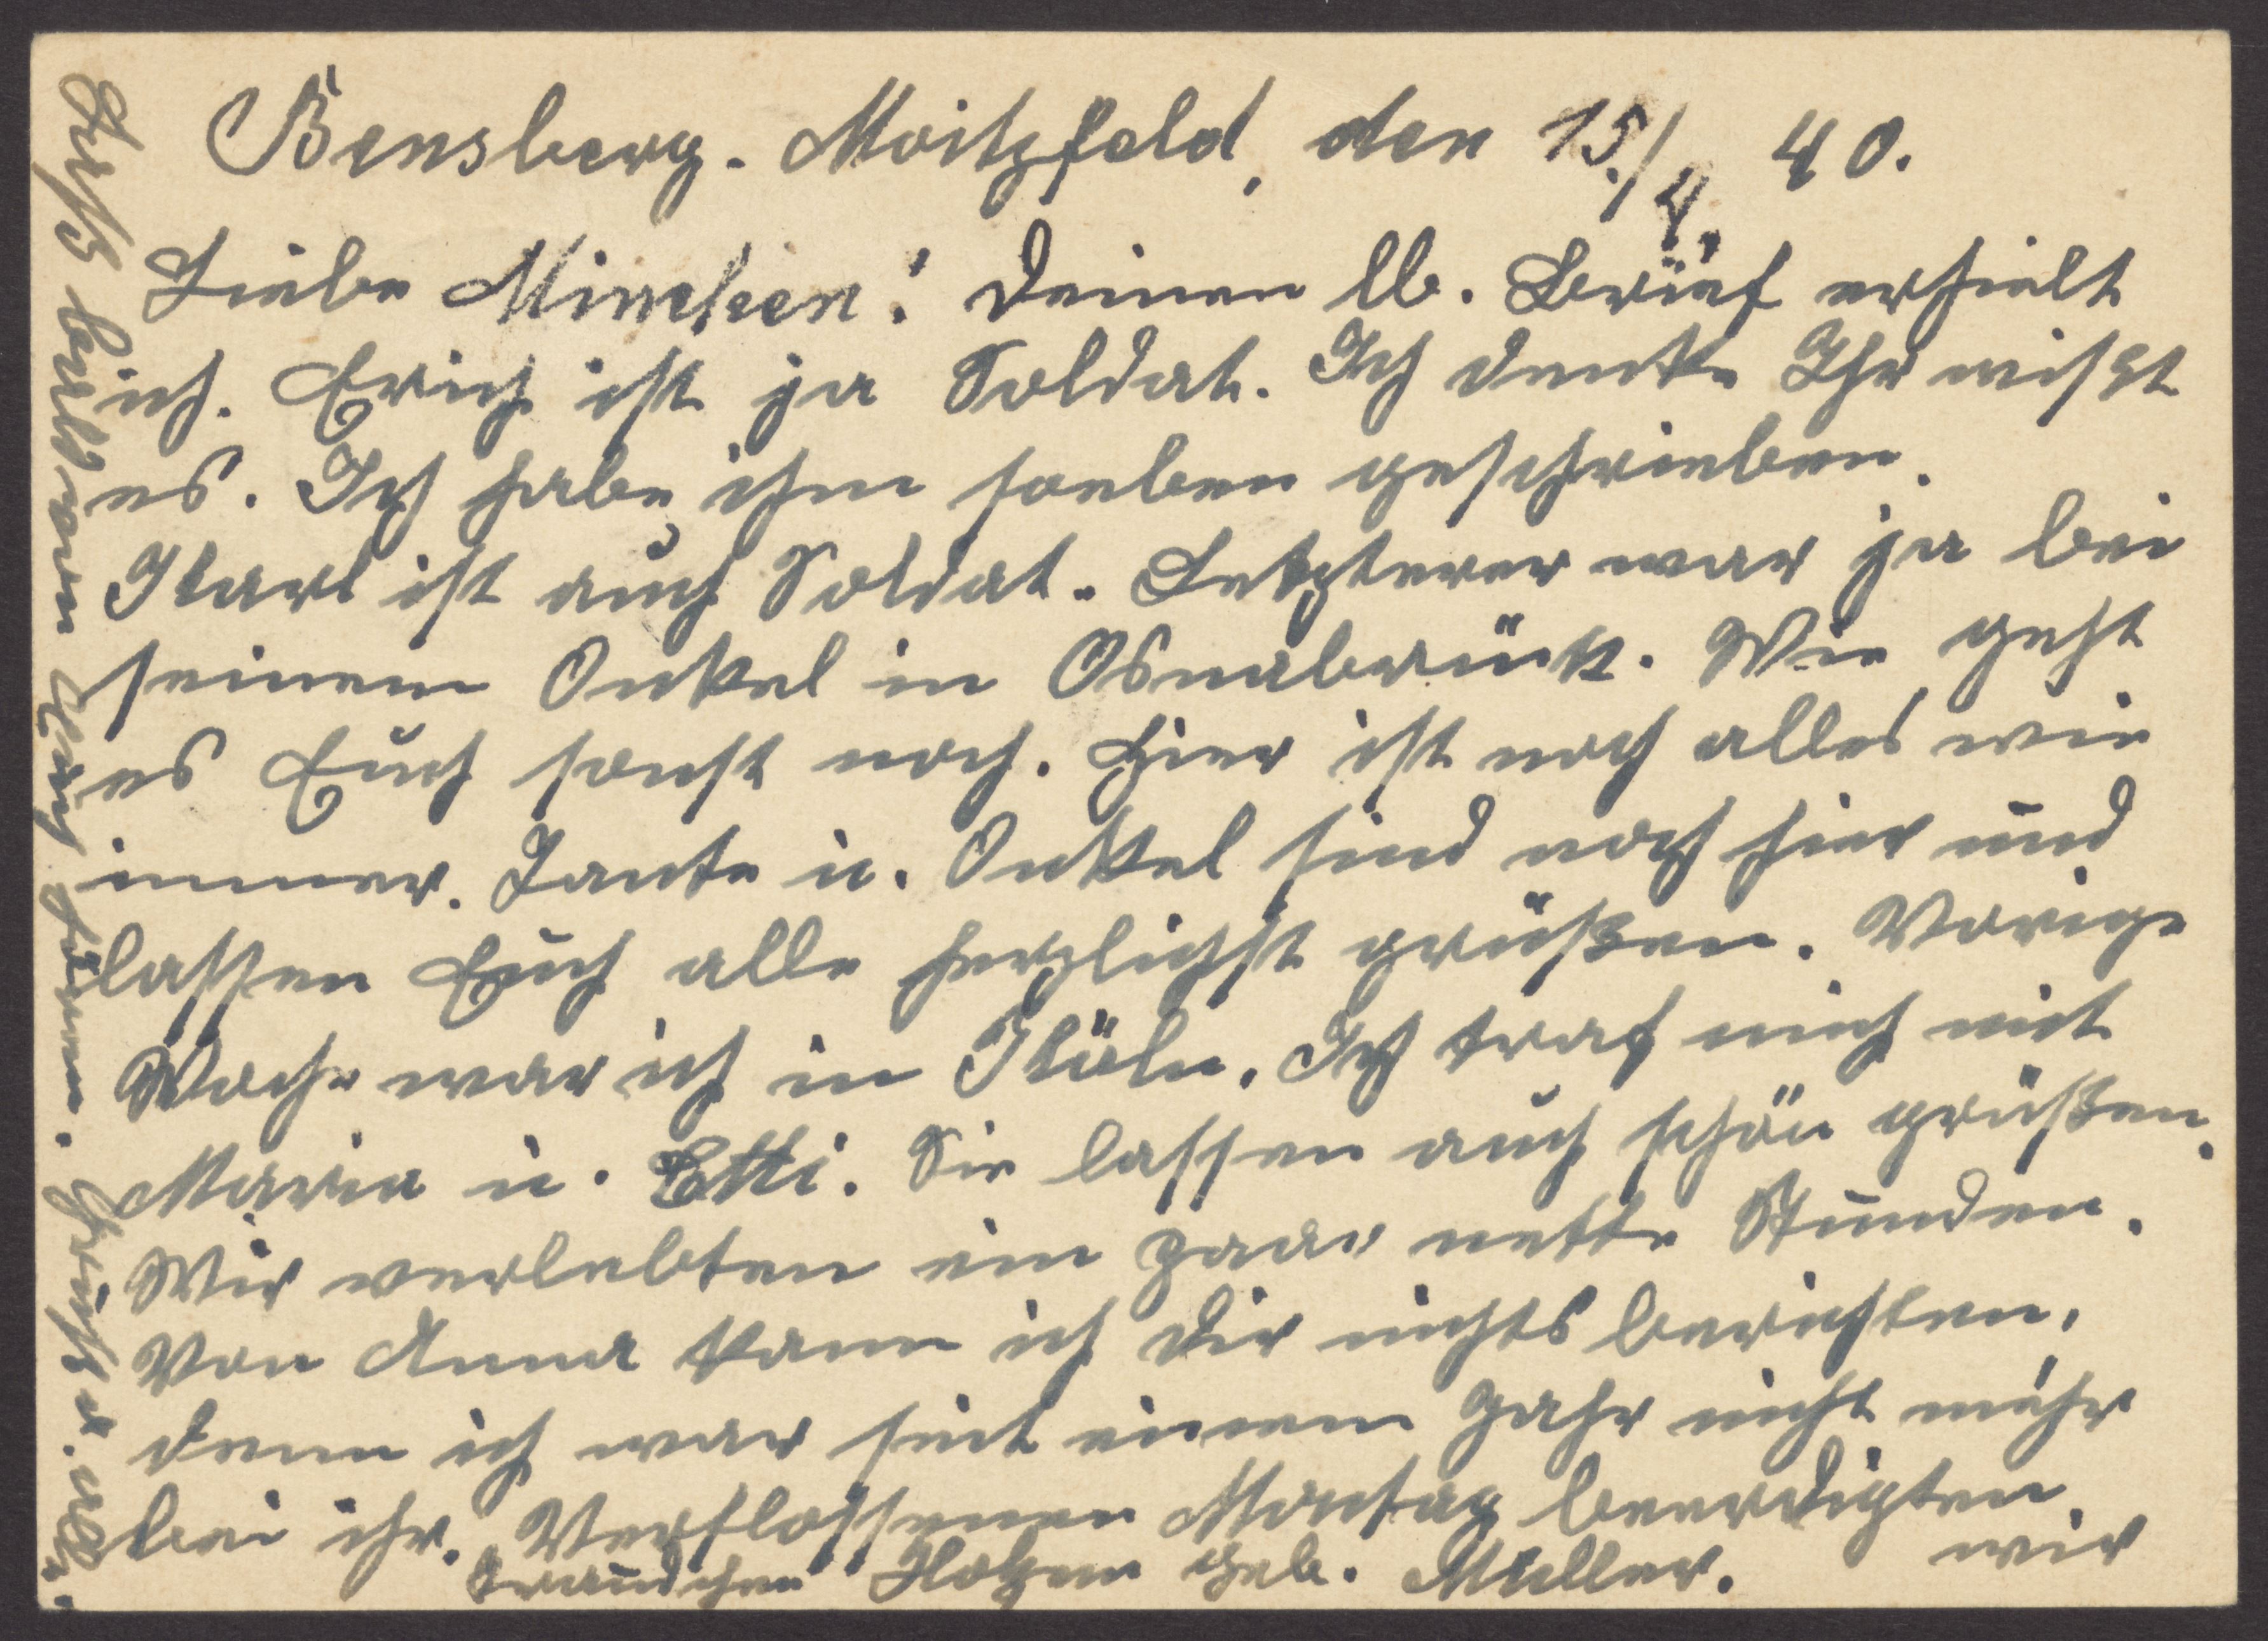 Bensberg-Moitzfeld, den 15./4. 40.
Liebe Minchen! Deinen lb. Brief erhielt
ich. Erich ist ja Soldat. Ich denke Ihr wißt
es. Ich habe ihm soeben geschrieben.
Karl ist auch Soldat. Letzterer war ja bei
seinem Onkel in Osnabrück. Wie geht
es Euch sonst noch. Hier ist noch alles wie
immer. Tante u. Onkel sind noch hier und
lassen Euch alle herzlichst grüßen. Vorige
Woche war ich in Köln. Ich traf mich mit
Maria u. Etti. Sie lassen auch schön grüßen.
Wir verlebten ein paar nette Stunden.
Von Anna kann ich Dir nichts berichten,
denn ich war seit einem Jahr nicht mehr
bei ihr. Verflossenen Montag beerdigten
wir
Traudchen geb. Müller.
bald von Euch hören. Grüße a. alle.